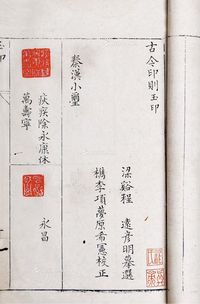 古今印則玉印
梁谿程　遠彦明摹選
檇李項夢原希憲校正
秦漢小璽
疢疾除永康休
萬壽寧
永昌